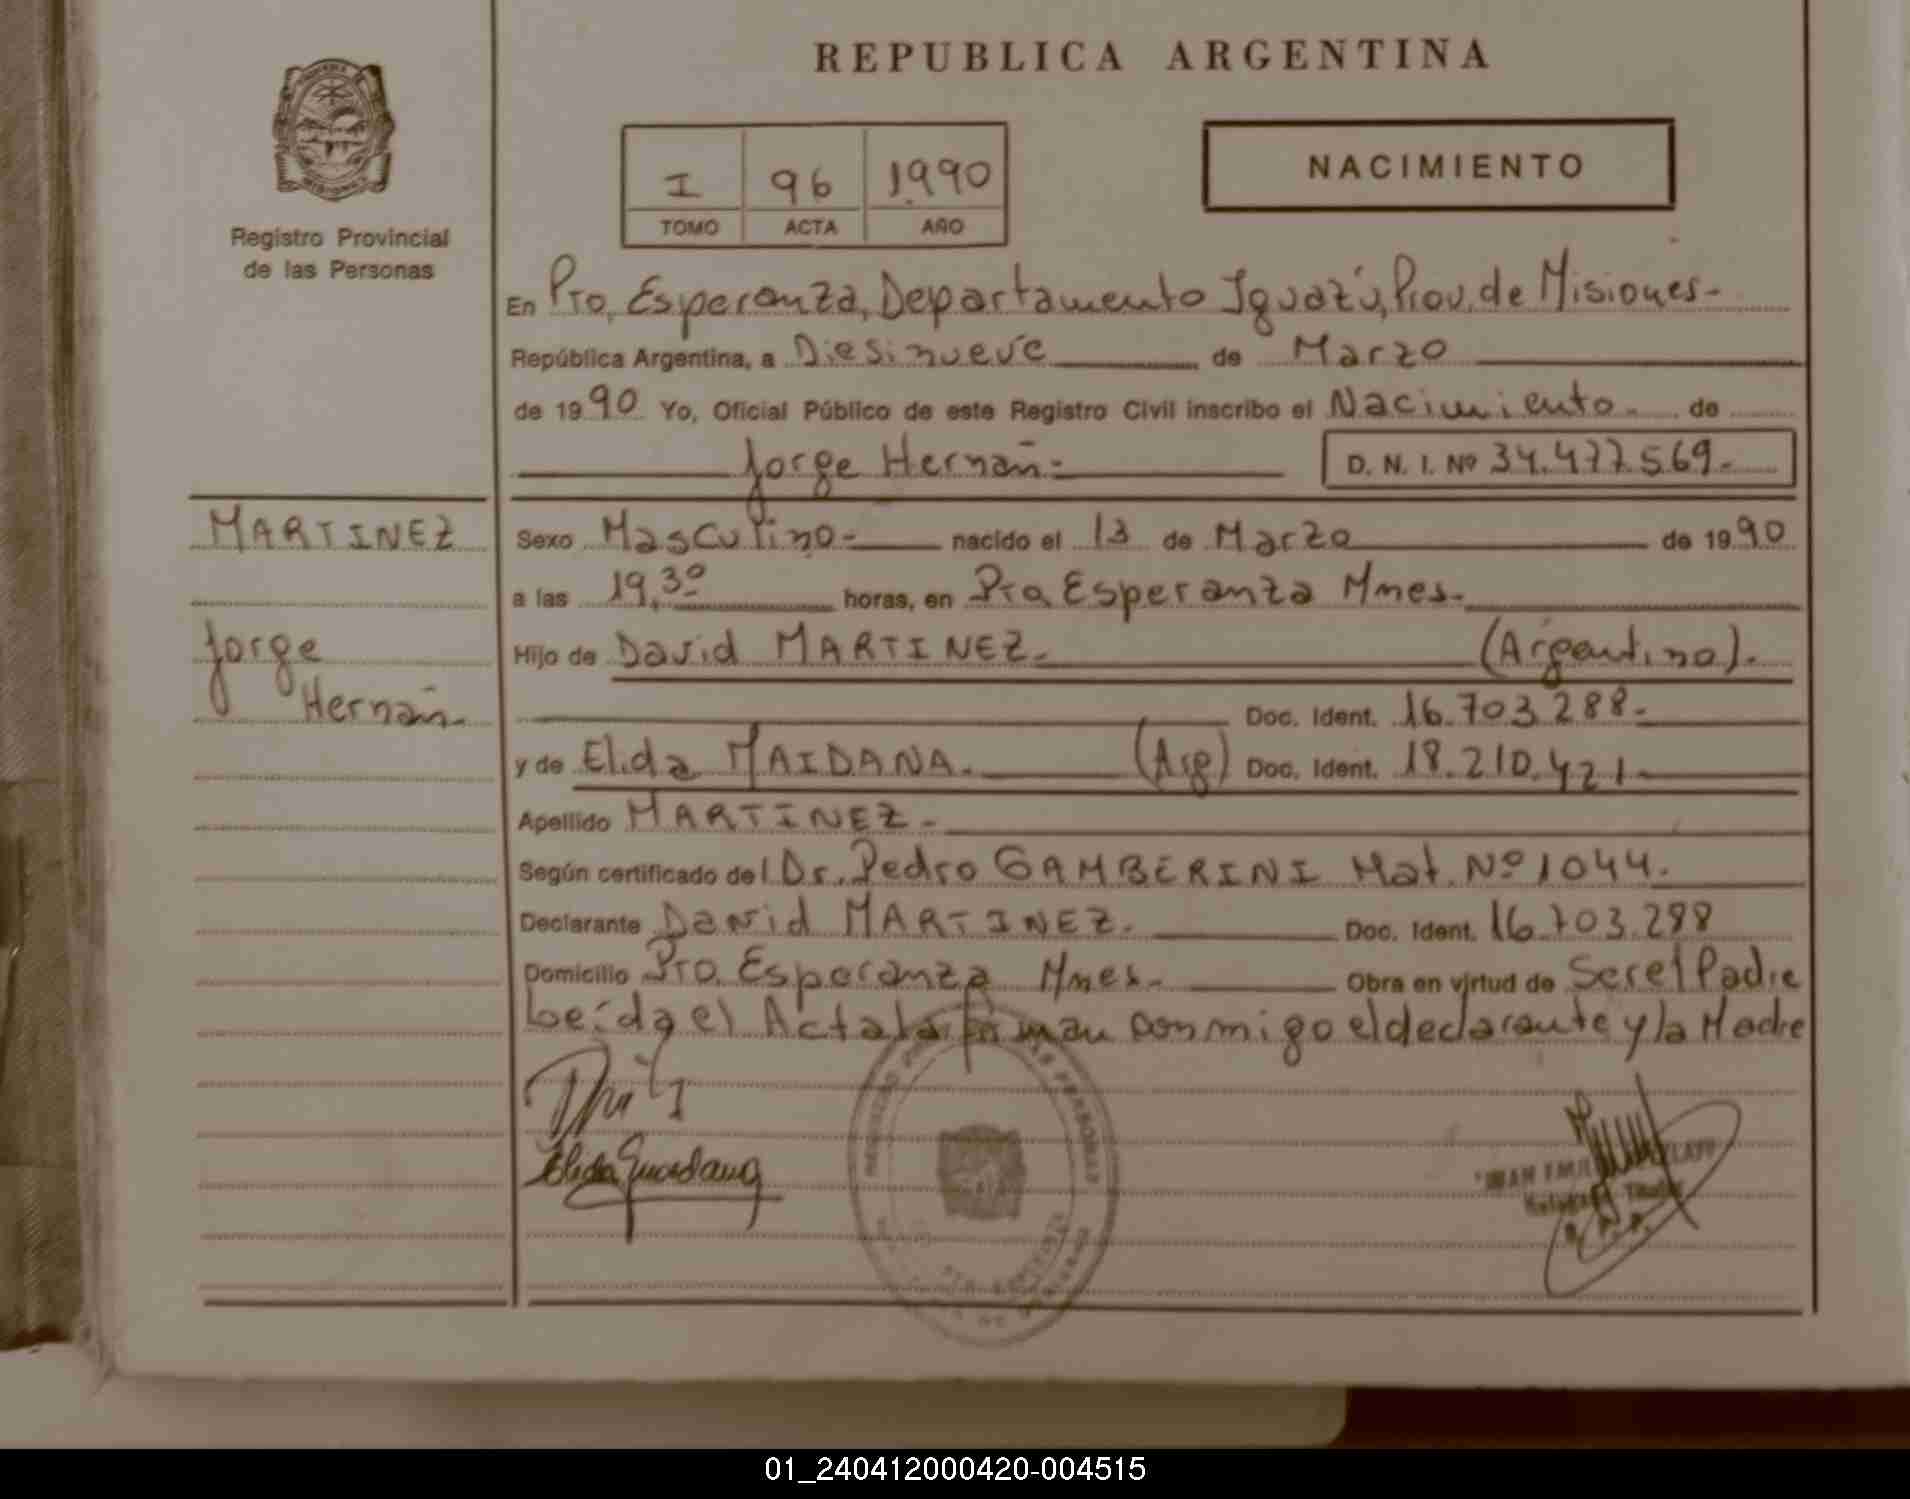 REPUBLICA ARGENTINA
Registro Provincial
de las Personas
I 96 1990
TOMO ACTA AÑO
NACIMIENTO
En Pto, Esperanza, Departamento Iguazú, Prov. de Misiones-
República Argentina, a Diesinueve de Marzo
de 1990 Yo, Oficial Público de este Registro Civil inscribo el Nacimiento. de
Jorge Hernán-
D. N. I. Nº 34.477.569-
MARTINEZ
Jorge
Hernán-
Sexo Masculino- nacido el 13 de Marzo de 1990
a las 19,30 horas, en Pto, Esperanza Mnes-
Hijo de David MARTINEZ- (Argentino)-
Doc. Ident. 16.703.288-
y de Elida MAIDANA. (Arg) Doc. Ident. 18.210.421-
Apellido MARTINEZ-
Según certificado del Dr. Pedro GAMBERINI Mat. Nº 1044.
Declarante David MARTINEZ. Doc. Ident. 16.703.288
Domicilio Pto. Esperanza Mnes- Obra en virtud de Ser el Padre
Leída el Acta la firman conmigo el declarante y la Madre
01_240412000420-004515